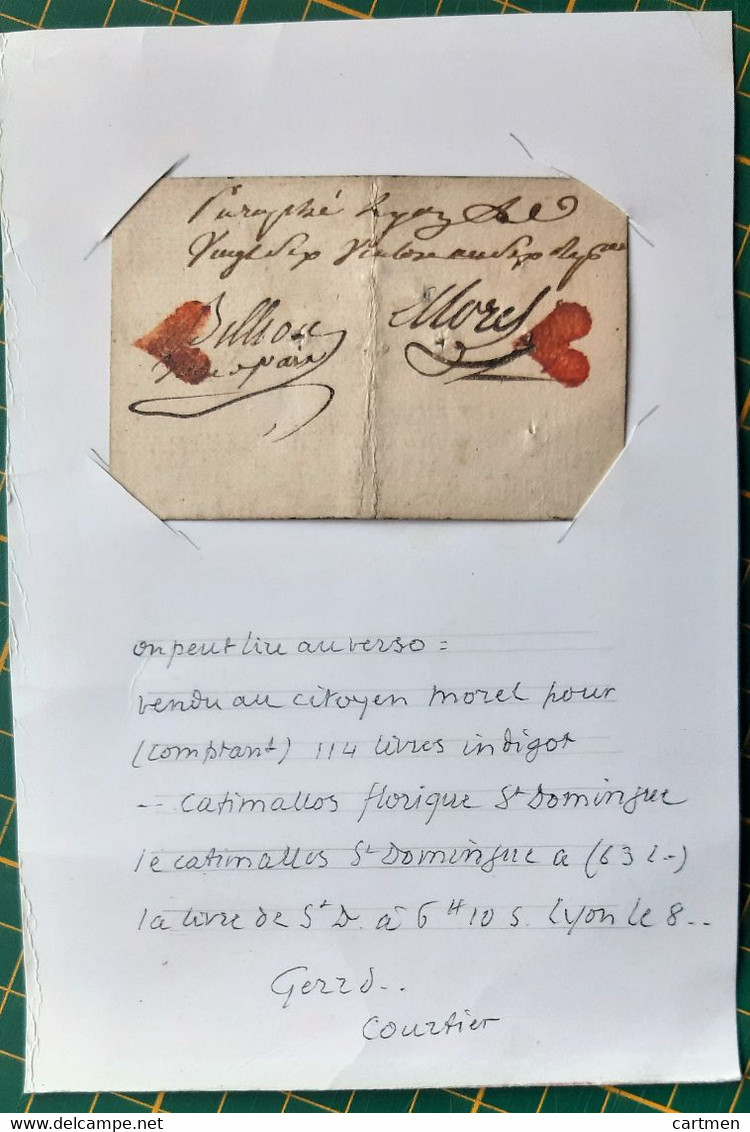 Paraphé Lyon le
Vingt Six
Billion
Morel
on peut lire au verso =
vendu au citoyen morel pour
(comptant) 114 livres indigot
-- catimallos florique St Domingue
le catimallos St Domingue a (63 l-)
la livre de St D. à 6 ₶ 10 s. Lyon le 8 --
Gerrd..
Courtier
cartmen